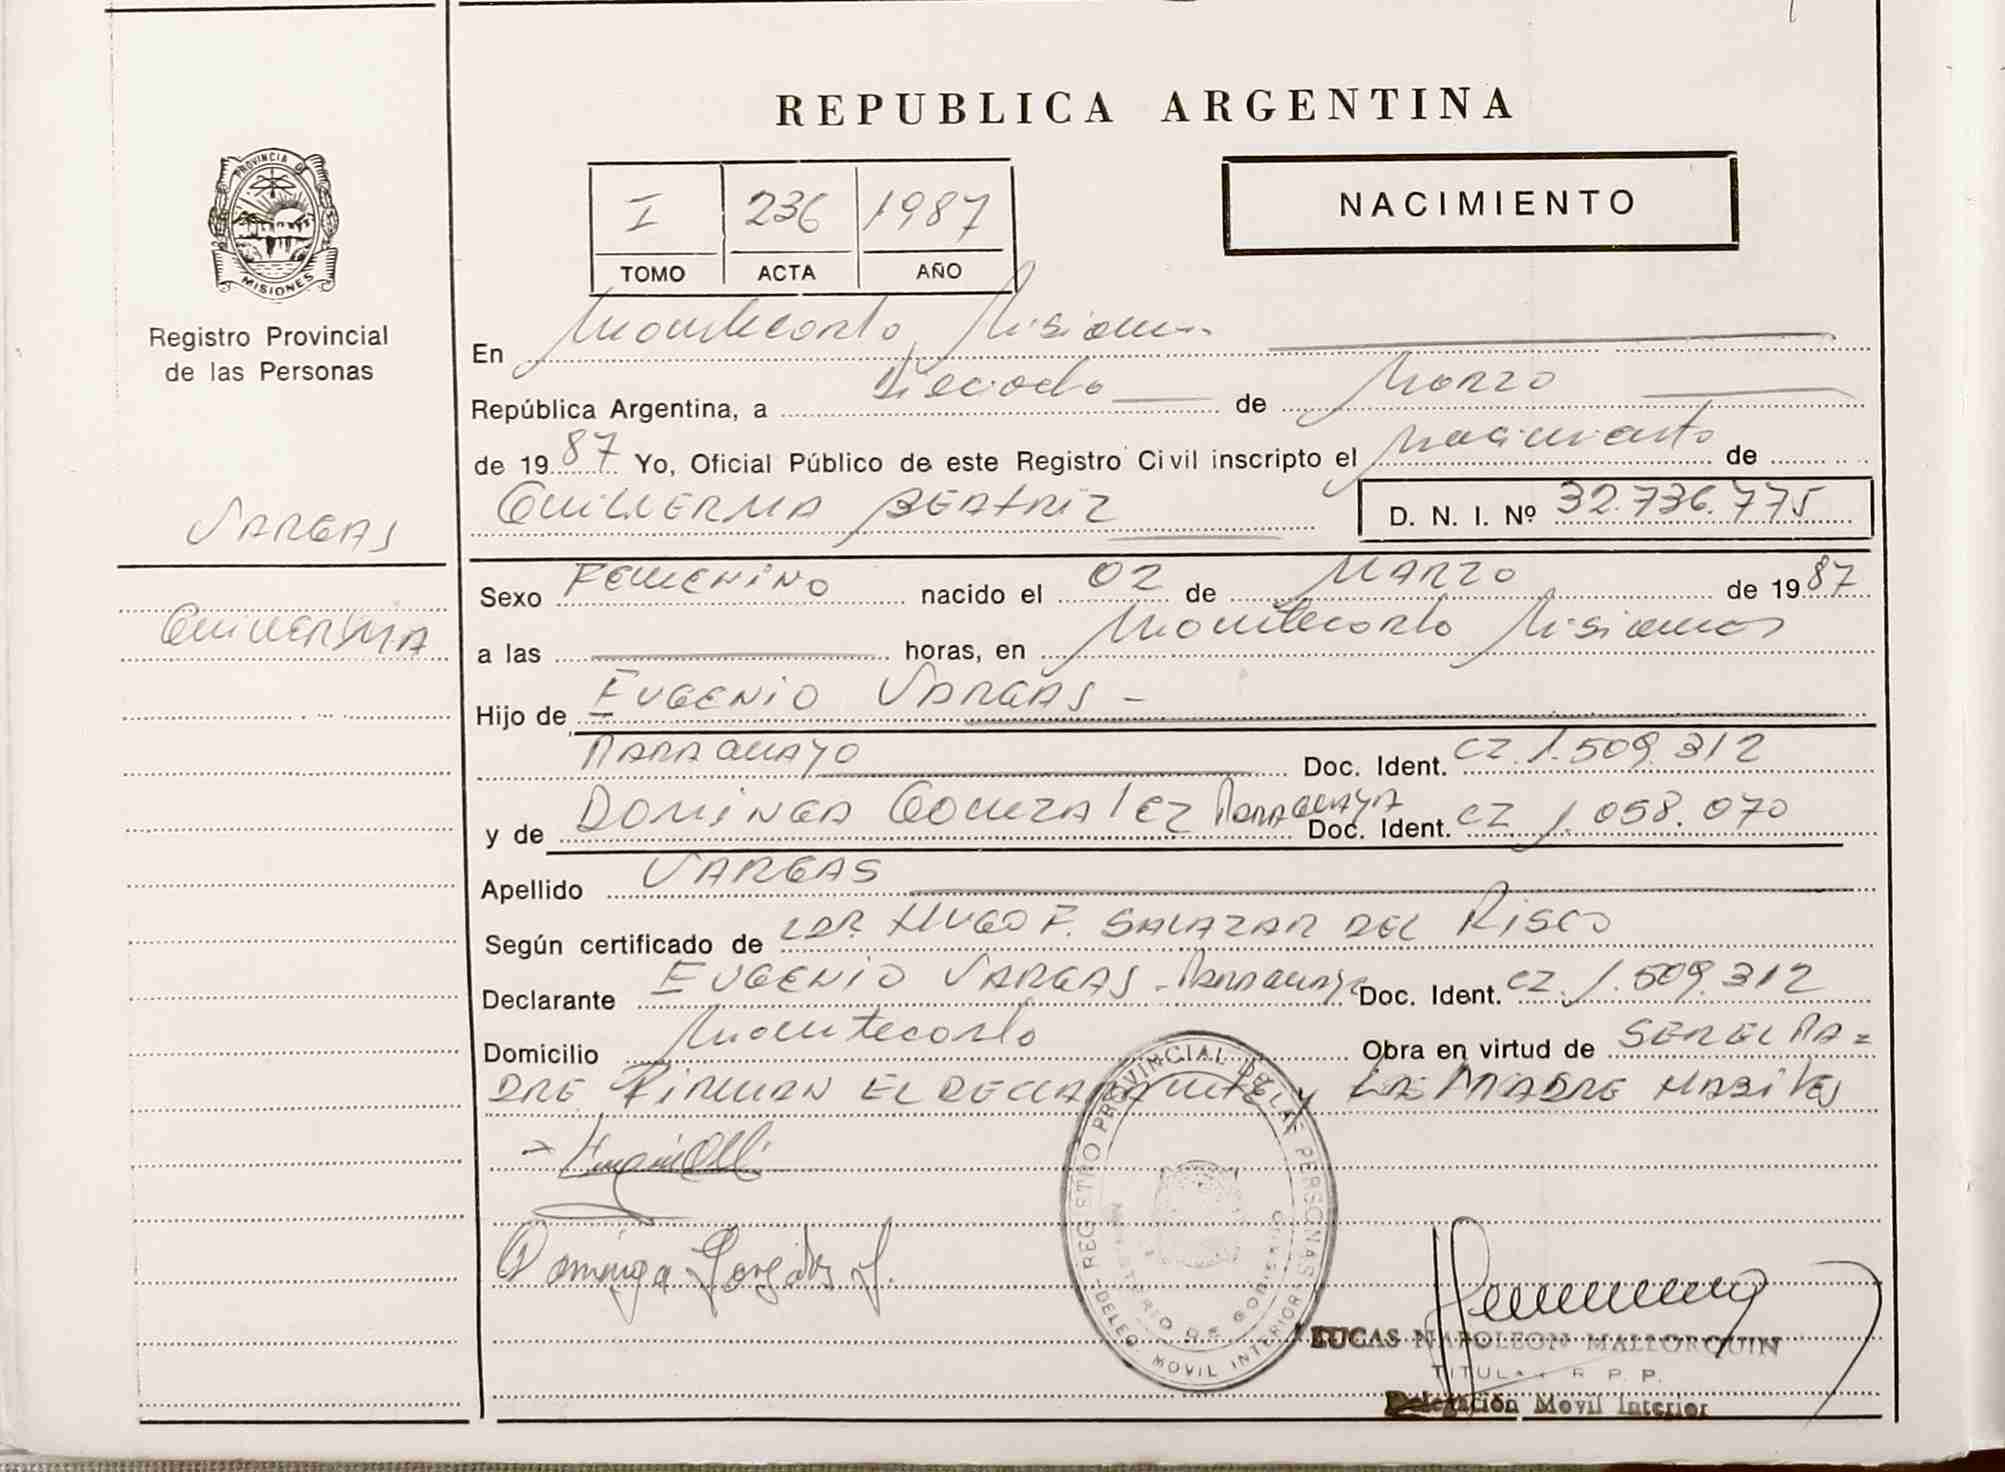 REPUBLICA ARGENTINA
PROVINCIA DE
MISIONES
Registro Provincial
de las Personas
I 236 1987
TOMO ACTA AÑO
NACIMIENTO
En Montecarlo, Misiones
República Argentina, a Dieciocho de Marzo
de 1987 Yo, Oficial Público de este Registro Civil inscripto el Nacimiento de
GUILLERMA BEATRIZ D. N. I. Nº 32.736.775
VARGAS
GUILLERMA
Sexo FEMENINO nacido el 02 de MARZO de 1987
a las horas, en Montecarlo Misiones
Hijo de EUGENIO VARGAS -
PARAGUAYO Doc. Ident. CZ 1.509.312
y de DOMINGA GONZALEZ PARAGUAYA Doc. Ident. CZ 1.058.070
Apellido VARGAS
Según certificado de DR HUGO F. SALAZAR DEL RISCO
Declarante EUGENIO VARGAS - PARAGUAYO Doc. Ident. CZ. 1.509.312
Domicilio Montecarlo Obra en virtud de SER EL PA=
DRE FIRMAN EL DECLARANTE y LA MADRE
Dominga
REGISTRO PROVINCIAL DE LAS PERSONAS
MINISTERIO DE GOBIERNO
DELEG. MOVIL INTERIOR
LUCAS NAPOLEON MALLORQUIN
TITULAR R. P. P.
Delegación Movil Interior